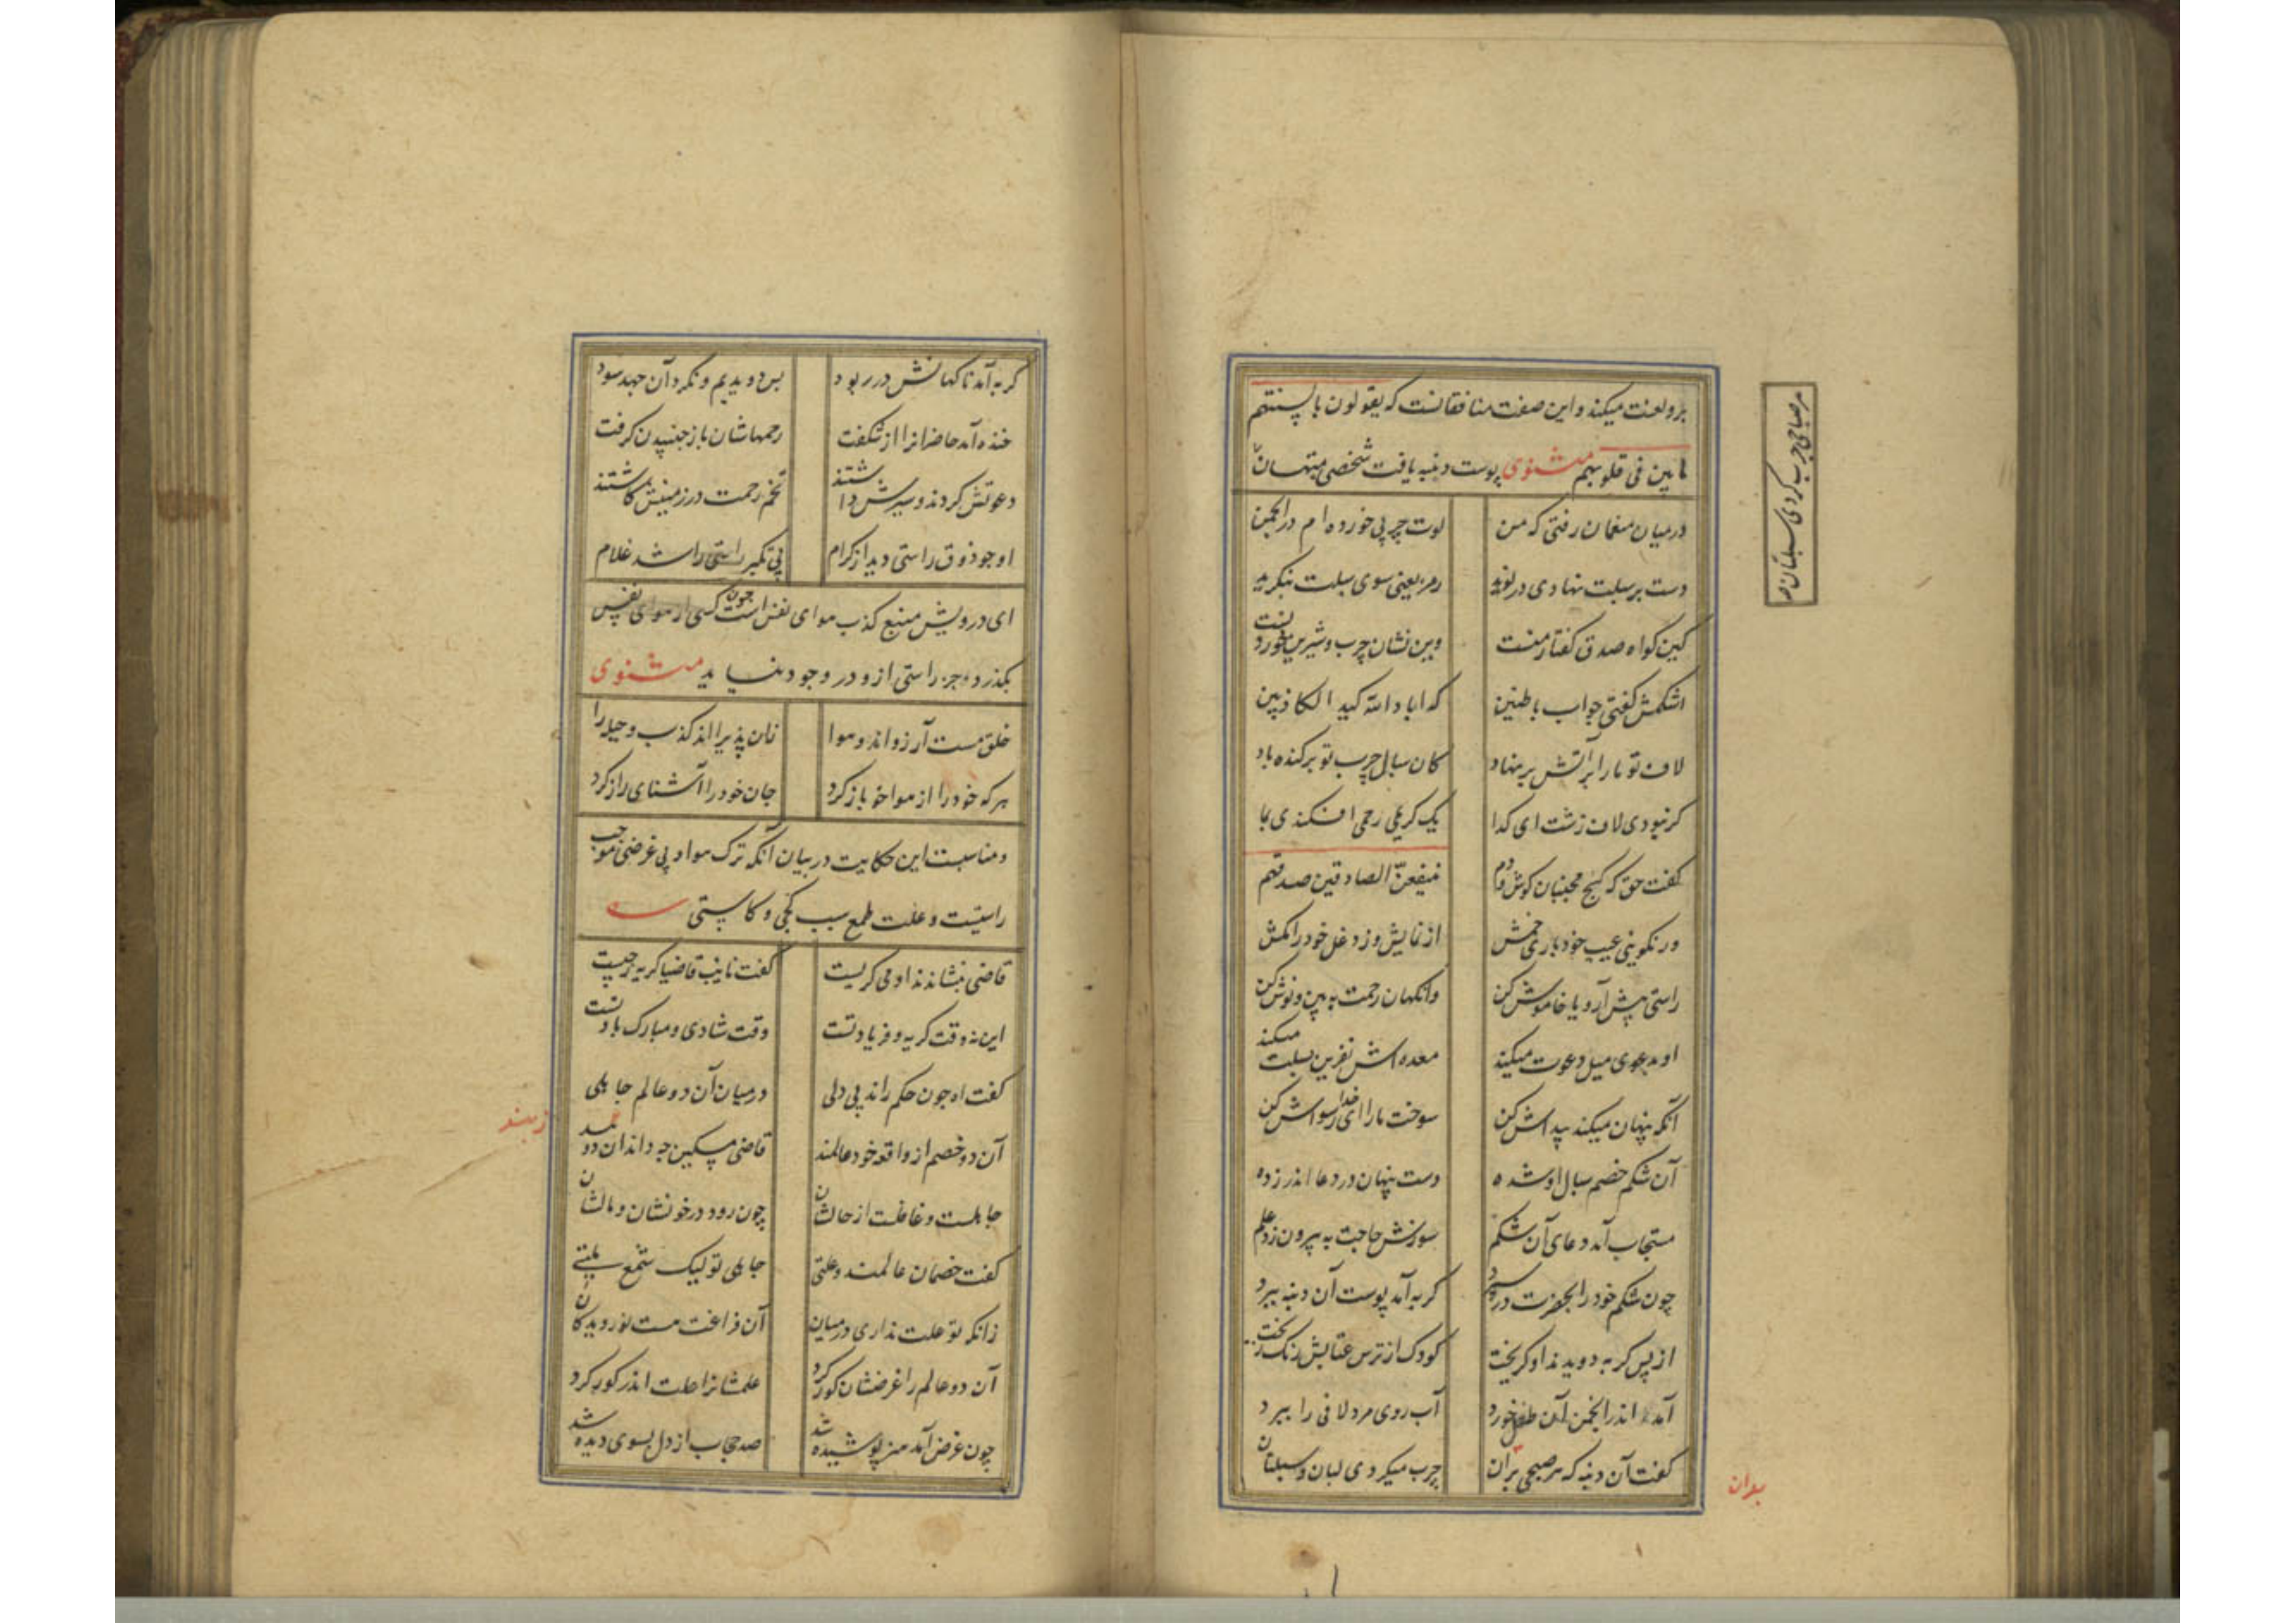 برو لعنت میکند و این صفت منافقانست که یقولون بالسنتهم
ما لیس فی قلوبهم مثنوی پوست دنبه یافت شخصی مستهان
هر صباحی چرب کردی سبلتان
در میان منعمان رفتی که من لوت چربی خورده ام در انجمن
دست بر سبلت نهادی در نوید رمز یعنی سوی سبلت بنگرید
کین گواه صدق گفتار منست وین نشان چرب و شیرین خوردنست
اشکمش گفتی جواب باطنین که اباد الله کید الکاذبین
لاف تو ما را بر آتش بر نهاد کان سبال چرب تو برکنده باد
گر نبودی لاف زشت ای گدا یک کریمی رحمی افکندی بما
گفت حق که کج مجنبان گوش و دم ینفعن الصادقین صدقهم
ور نگویی عیب خود باری خمش از نمایش وز دغل خود را مکش
راستی پیش آر و یا خاموش کن وانگهان رحمت ببین و نوش کن
او بدعوی میل دعوت میکند معده اش نفرین سبلت میکند
آنکه پنهان میکند پیداش کن سوخت ما را ای خدا رسواش کن
آن شکم خصم سبال او شده دست پنهان در دعا اندر زده
مستجاب آمد دعای آن شکم سوزش حاجت به بیرون زد علم
چون شکم خود را بحضرت در سپرد گربه آمد پوست آن دنبه ببرد
از پس گربه دویدند او گریخت کودک از ترس عتابش رنگ ریخت
آمد اندر انجمن آن طفل خورد آب روی مرد لافی را ببرد
گفت آن دنبه که هر صبحی بران چرب میکردی لبان و سبلتان
بدان
گربه آمد ناگهانش در ربود بس دویدیم و نکرد آن جهد سود
خنده آمد حاضرانرا از شگفت رحمهاشان باز جنبیدن گرفت
دعوتش کردند و سیرش داشتند تخم رحمت در زمینش کاشتند
او چو ذوق راستی دید از کرام بی تکبر راستی را شد غلام
ای درویش منبع کذب هوای نفس است چون کسی از هوای نفس
بگذرد جز راستی ازو در وجود نیاید مثنوی
خلق مست آرزواند و هوا زان پذیرااند کذب و حیله را
هر که خود را از هوا خو باز کرد جان خود را آشنای راز کرد
و مناسبت این حکایت در بیان آنکه ترک هوا و بی غرضی موجب
راستیست و علت طمع سبب کجی و کاستی
قاضی بنشاندند او می گریست گفت نایب قاضیا گریه ز چیست
این نه وقت گریه و فریاد تست وقت شادی و مبارک باد تست
گفت اه چون حکم راند بی دلی در میان آن دو عالم جاهلی
آن دو خصم از واقعه خود عالمند قاضی مسکین چه داند ان دو بند
ز بند
جاهلست و غافلست از حالشان چون رود در خونشان و مالشان
گفت خصمان عالمند و علتی جاهلی تو لیک شمع ملتی
زانکه تو علت نداری در میان آن فراغت هست نور دیدگان
آن دو عالم را غرضشان کور کرد علمشانرا علت اندر گور کرد
چون غرض آمد هنر پوشیده شد صد حجاب از دل بسوی دیده شد